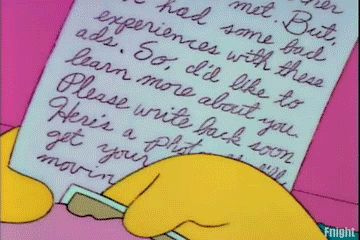 met. But,
had some bad
experiences with these
ads. So, I'd like to
learn more about you.
Please write back soon
Here's a
get your
movin
Fnight